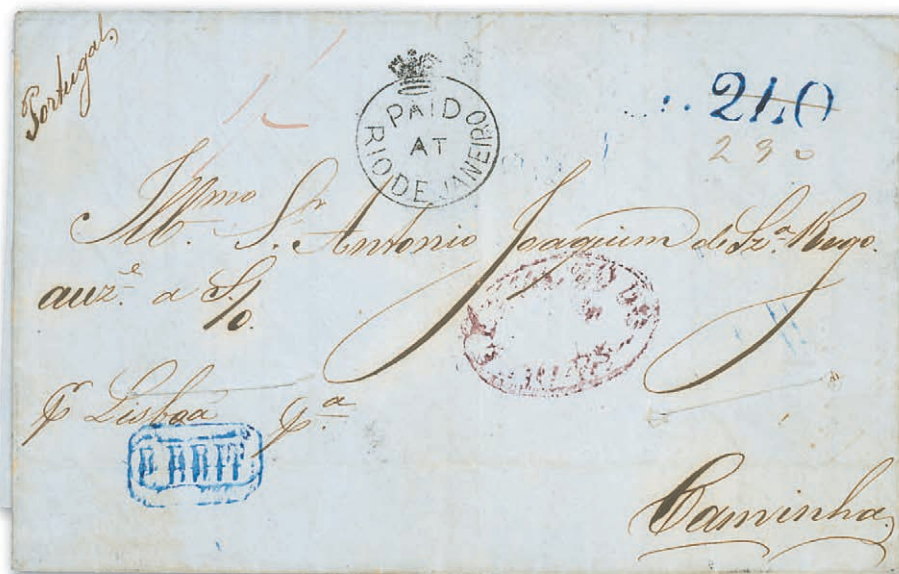 Portugal
PAID AT RIO DE JANEIRO
240
230
Illmo Sr. Antonio Joaquim de Sza. Rego.
auze. a S/o.
pr Lisboa pa.
P. BRIT.
Caminha